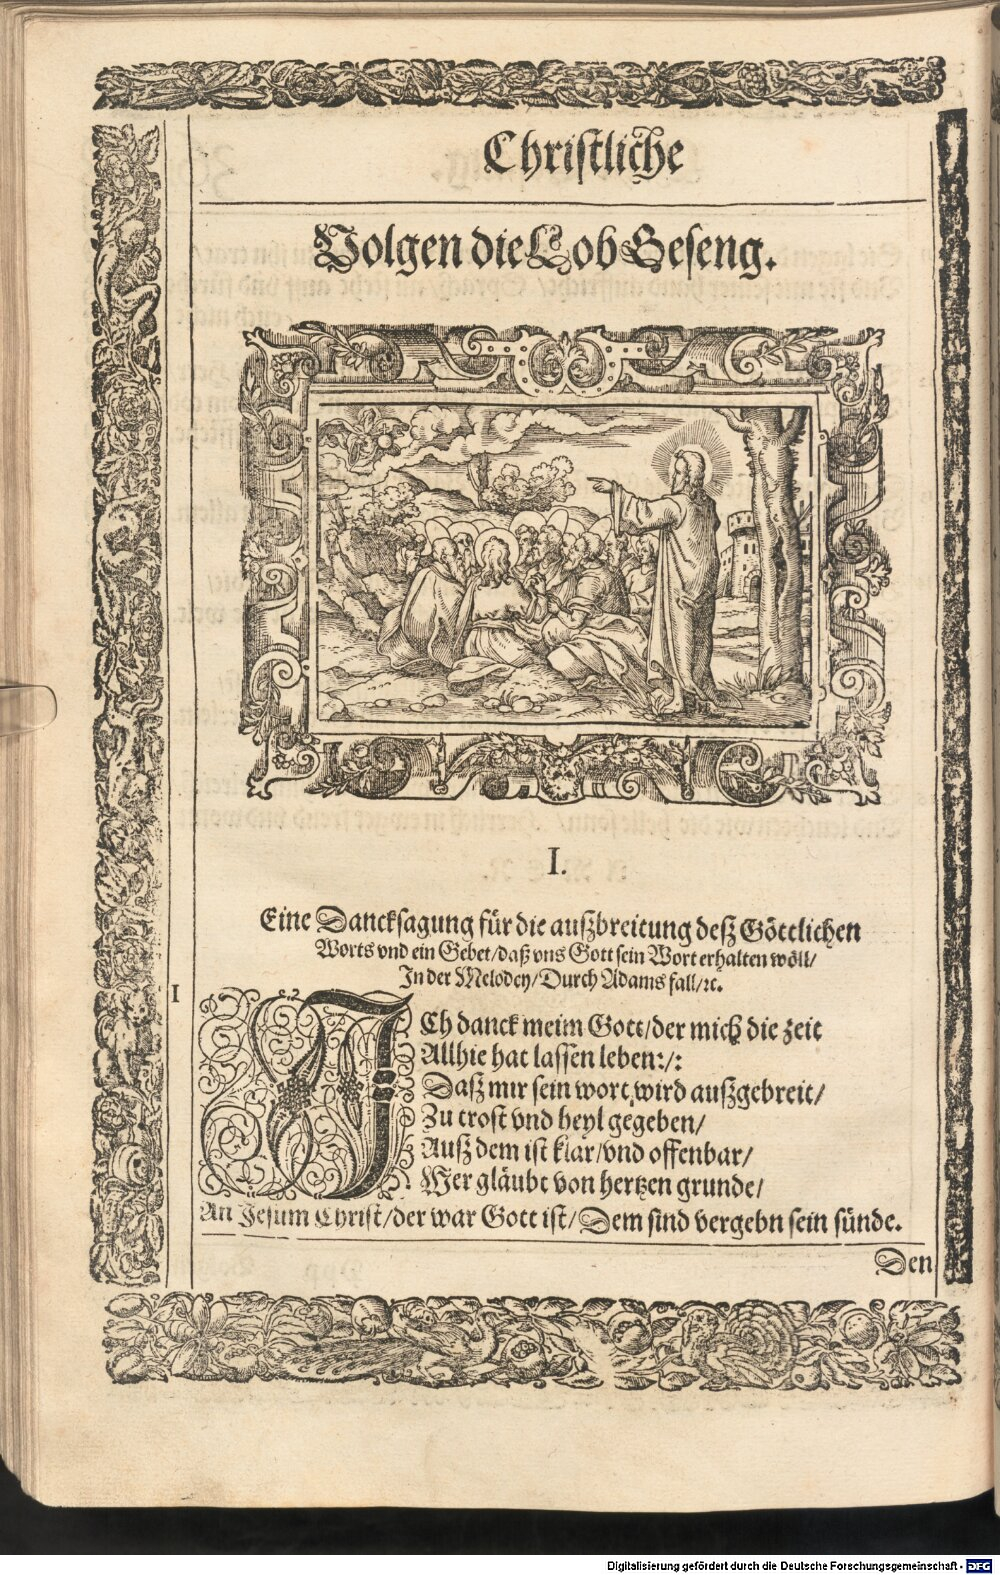 Christliche
Volgen die Lob Geseng.
I.
Eine Dancksagung für die außbreitung deß Göttlichen
Worts vnd ein Gebet/daß vns Gott sein Wort erhalten wöll/
In der Melodey/Durch Adams fall/ꝛc.
1
ICh danck meim Gott/der mich die zeit
Allhie hat lassen leben:/:
Daß mir sein wort wird außgebreit/
Zu trost vnd heyl gegeben/
Auß dem ist klar/vnd offenbar/
Wer gläubt von hertzen grunde/
An Jesum Christ/der war Gott ist/Dem sind vergebn sein sünde.
Den
Digitalisierung gefördert durch die Deutsche Forschungsgemeinschaft - DFG